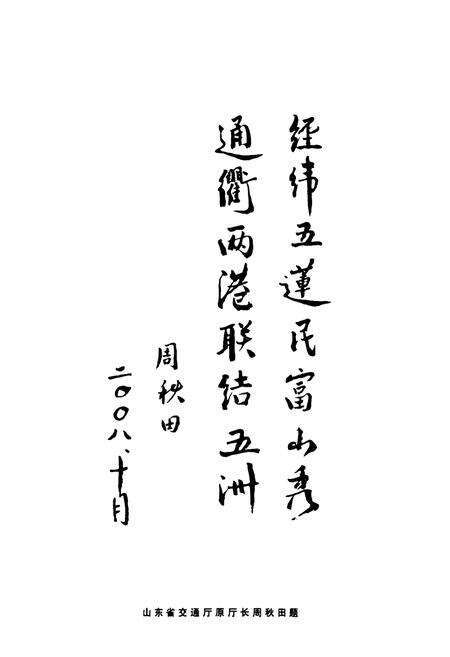 經纬五蓮民富山秀
通衢两港联结五洲
周秋田
二〇〇八、十月
山东省交通厅原厅长周秋田题